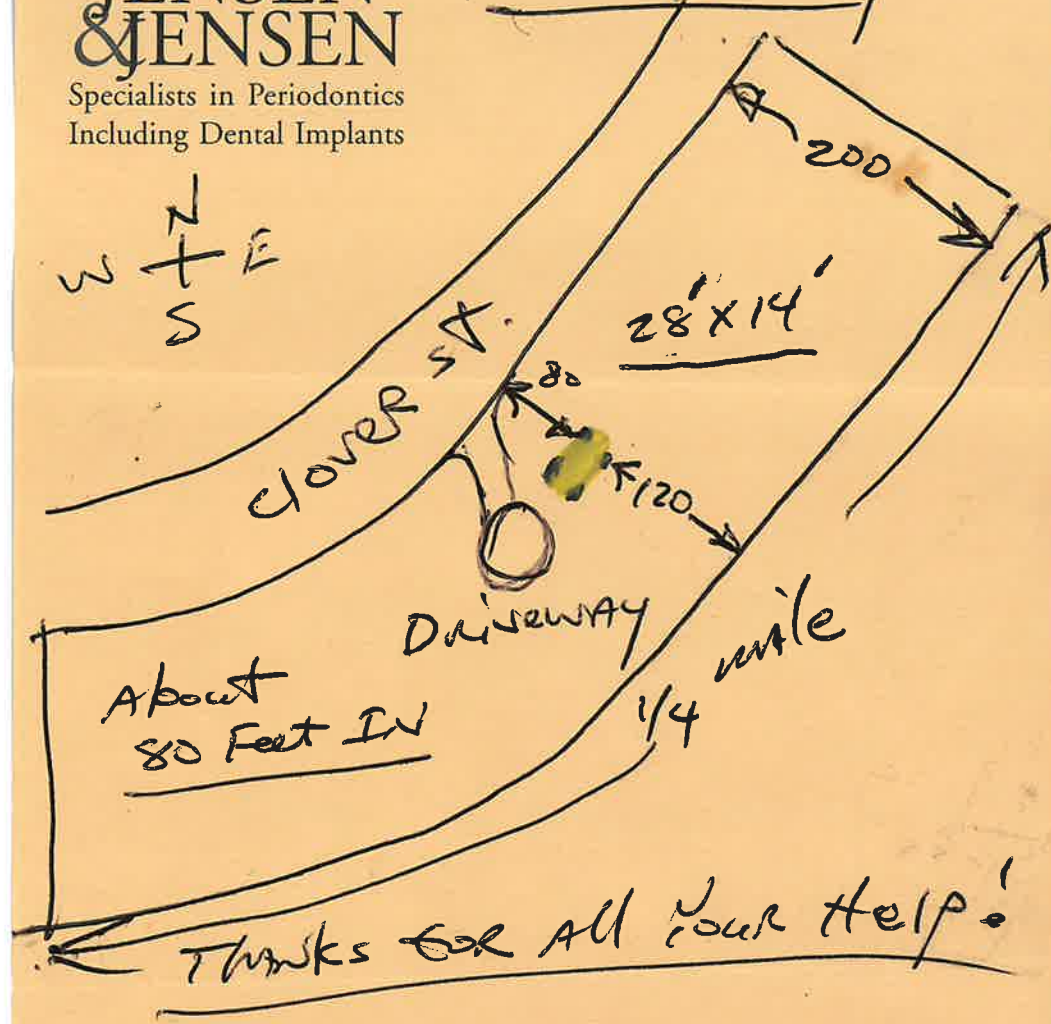 JENSEN
&JENSEN
Specialists in Periodontics
Including Dental Implants
200
N
W E
S
28' x 14'
Clover St.
80
120
Driveway
mile
About
80 Feet IN
1/4
THANKS FOR All Your Help!